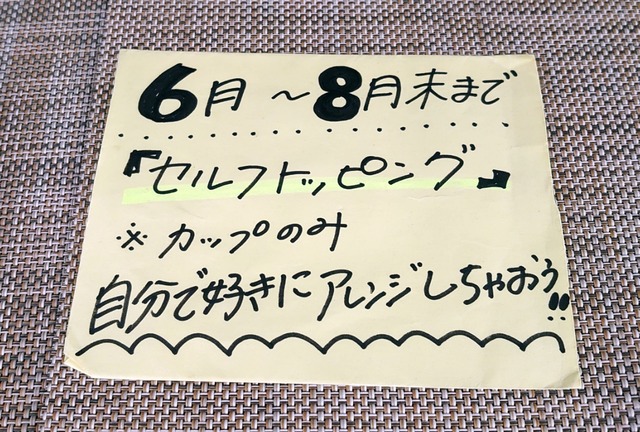 6月～8月末まで
『セルフトッピング』
※カップのみ
自分で好きにアレンジしちゃおう!!